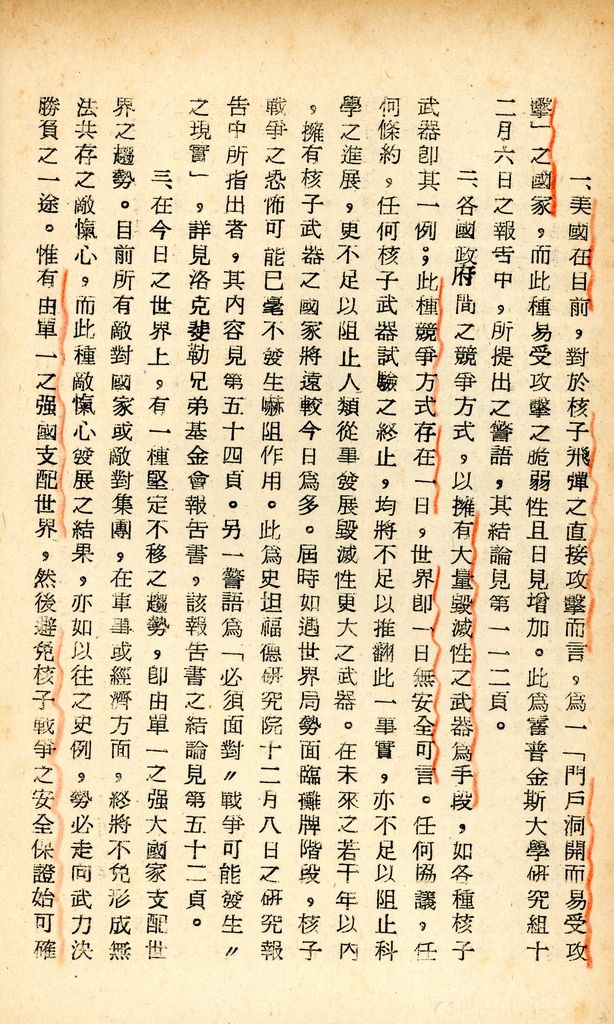 一、美國在目前，對於核子飛彈之直接攻擊而言，爲一「門戶洞開而易受攻
擊」之國家，而此種易受攻擊之脆弱性且日見增加。此爲霍普金斯大學研究組十
二月六日之報告中，所提出之警語，其結論見第一一二頁。
二、各國政府間之競爭方式，以擁有大量毀滅性之武器爲手段，如各種核子
武器卽其一例；此種競爭方式存在一日，世界卽一日無安全可言。任何協議，任
何條約，任何核子武器試驗之終止，均將不足以推翻此一事實，亦不足以阻止科
學之進展，更不足以阻止人類從事發展毀滅性更大之武器。在未來之若干年以內
，擁有核子武器之國家將遠較今日爲多。屆時如遇世界局勢面臨攤牌階段，核子
戰爭之恐怖可能已毫不發生嚇阻作用。此爲史坦福德研究院十二月八日之研究報
告中所指出者，其內容見第五十四頁。另一警語爲「必須面對〝戰爭可能發生〞
之現實」，詳見洛克斐勒兄弟基金會報告書，該報告書之結論見第五十二頁。
三、在今日之世界上，有一種堅定不移之趨勢，卽由單一之强大國家支配世
界之趨勢。目前所有敵對國家或敵對集團，在軍事或經濟方面，終將不免形成無
法共存之敵愾心，而此種敵愾心發展之結果，亦如以往之史例，勢必走向武力決
勝負之一途。惟有由單一之强國支配世界，然後避免核子戰爭之安全保證始可確